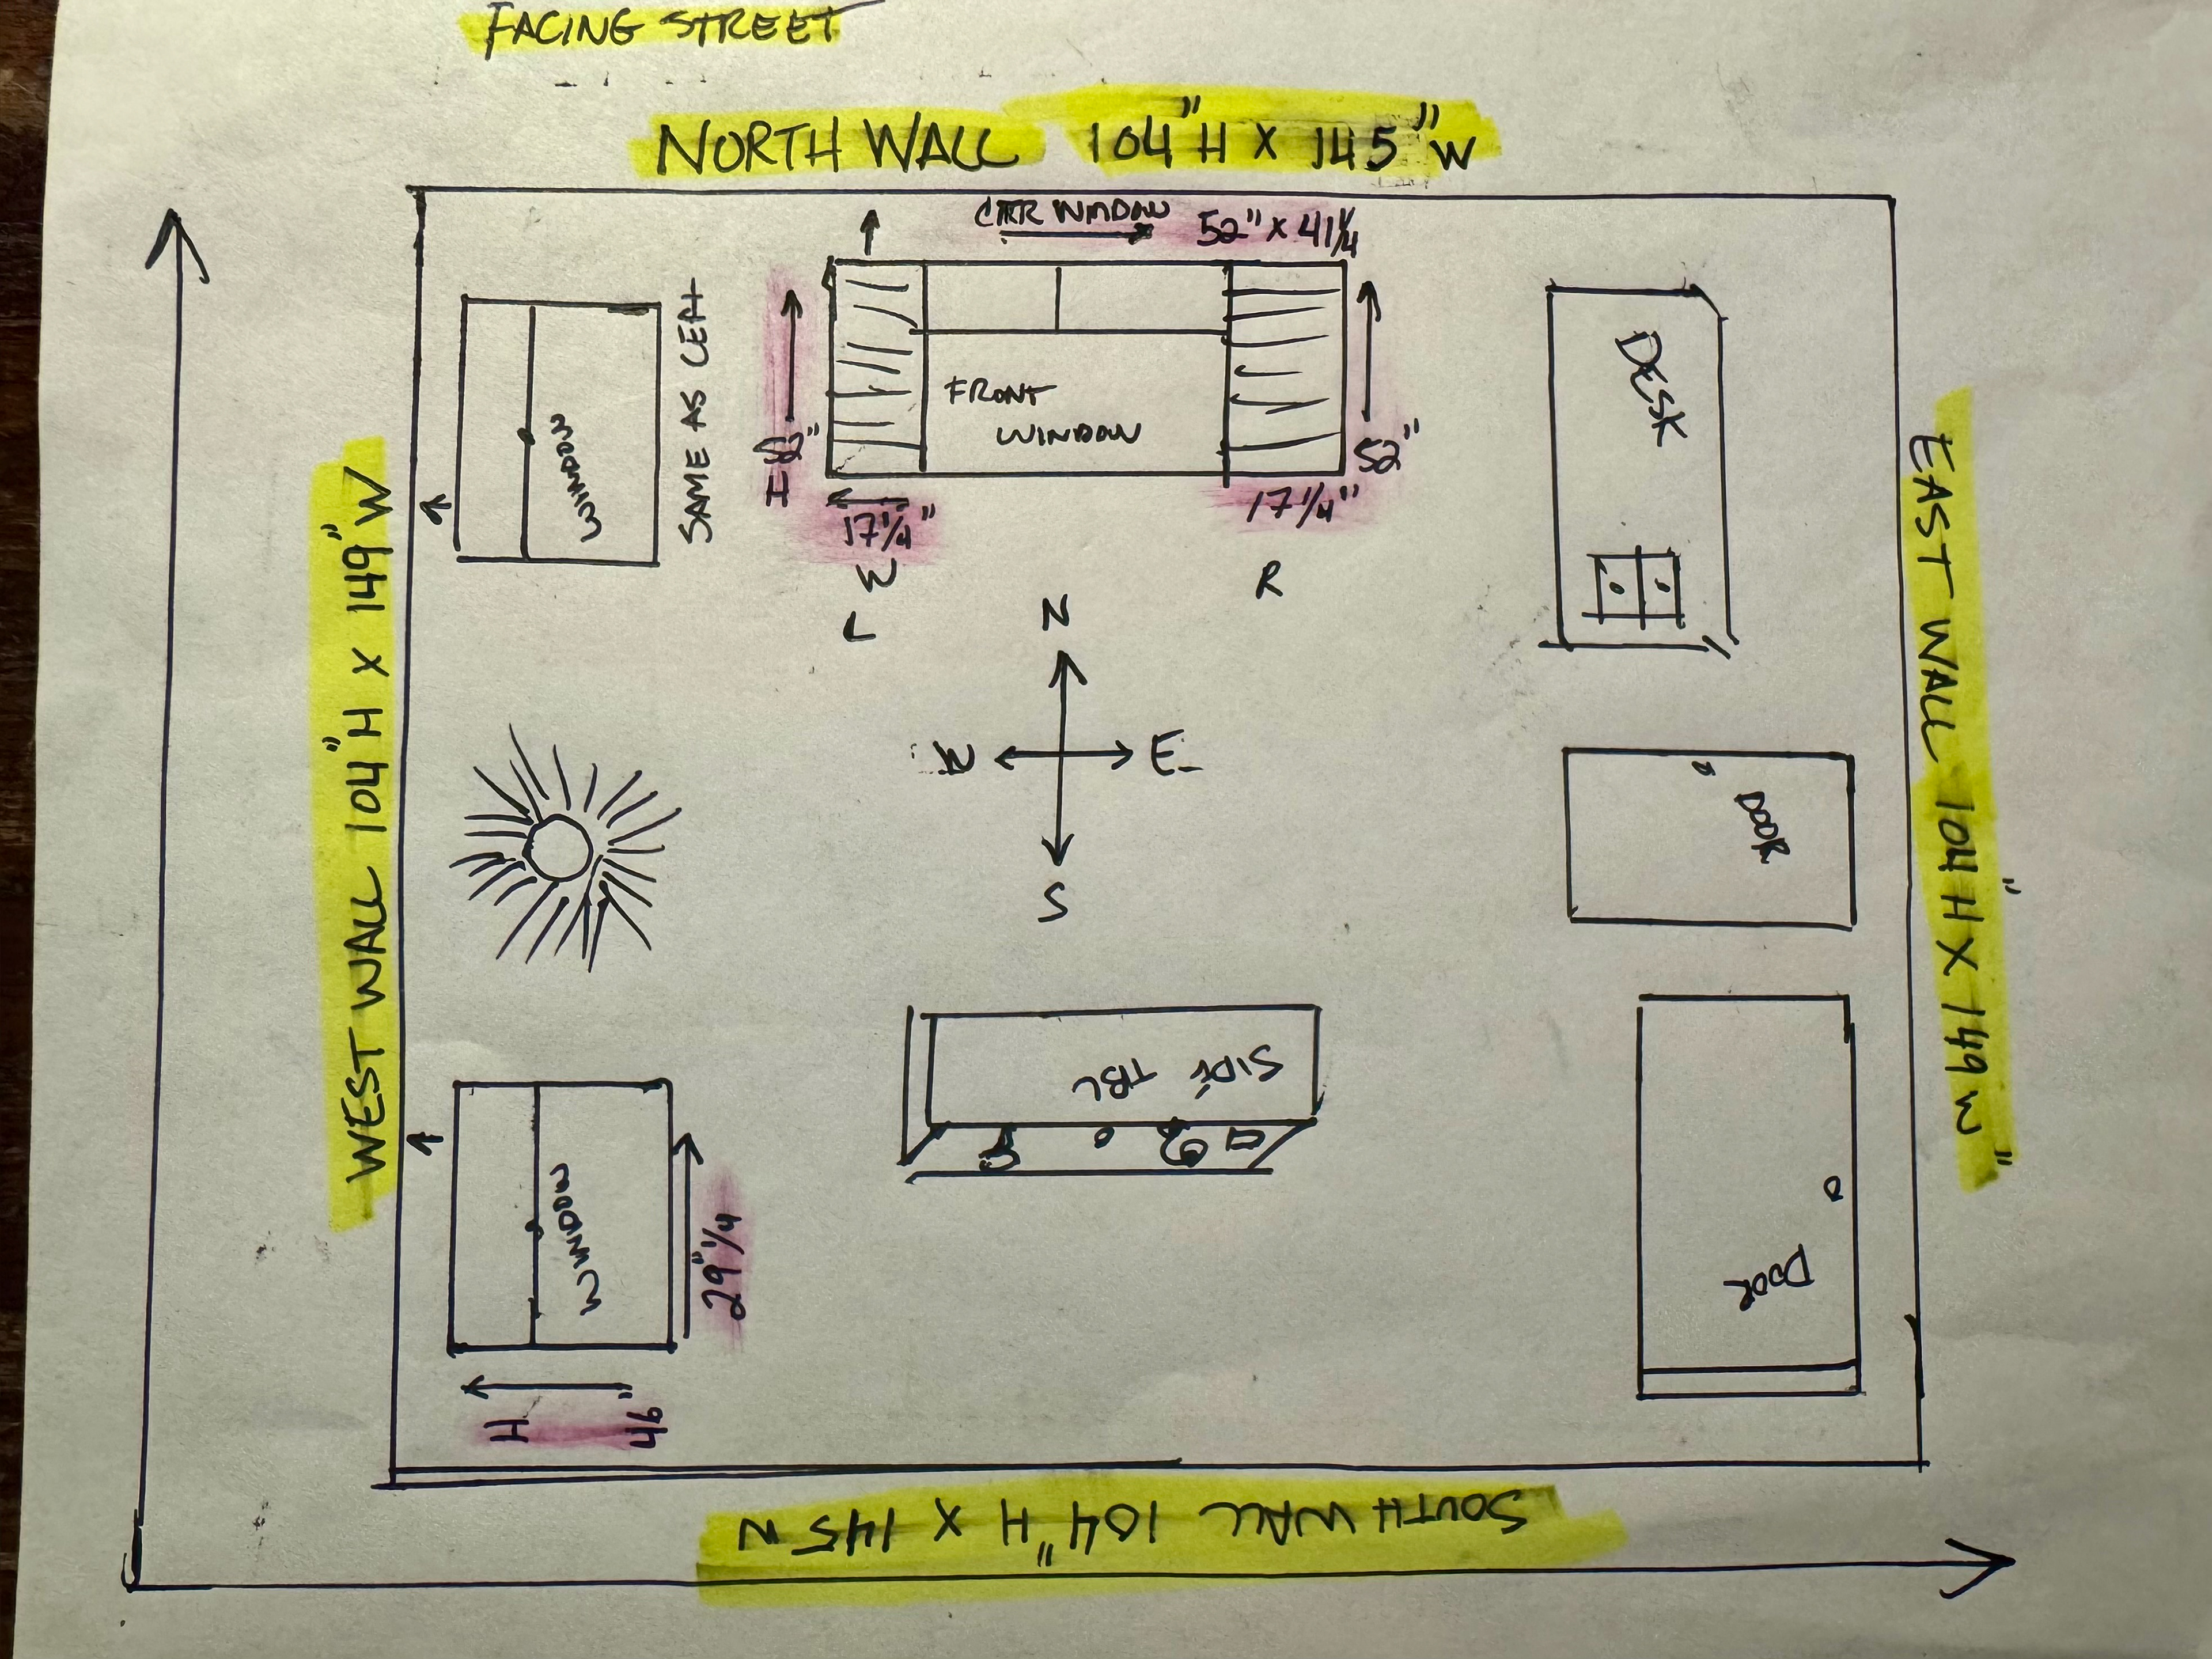 FACING STREET
NORTH WALL 104"H X 145"W
CTR WINDOW 52" X 41 1/4
WINDOW
SAME AS LEFT
H 52"
FRONT
WINDOW
52"
17 1/4"
W
L
17 1/4"
R
DESK
N
W E
S
DOOR
WEST WALL 104"H X 149"W
EAST WALL 104"H X 149"W
SIDE TBL
WINDOW
29" 1/4
H 46"
DOOR
SOUTH WALL 104"H X 145 W